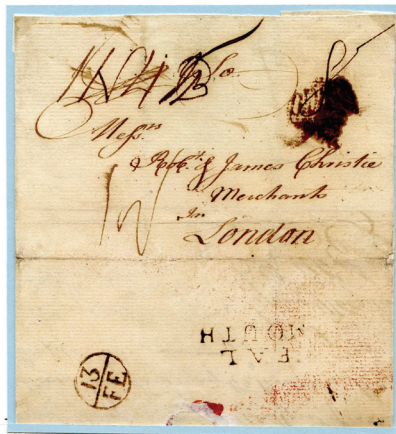 Messrs
Robt. & James Christie
Merchants
In
London
FAL
MOUTH
13
FE